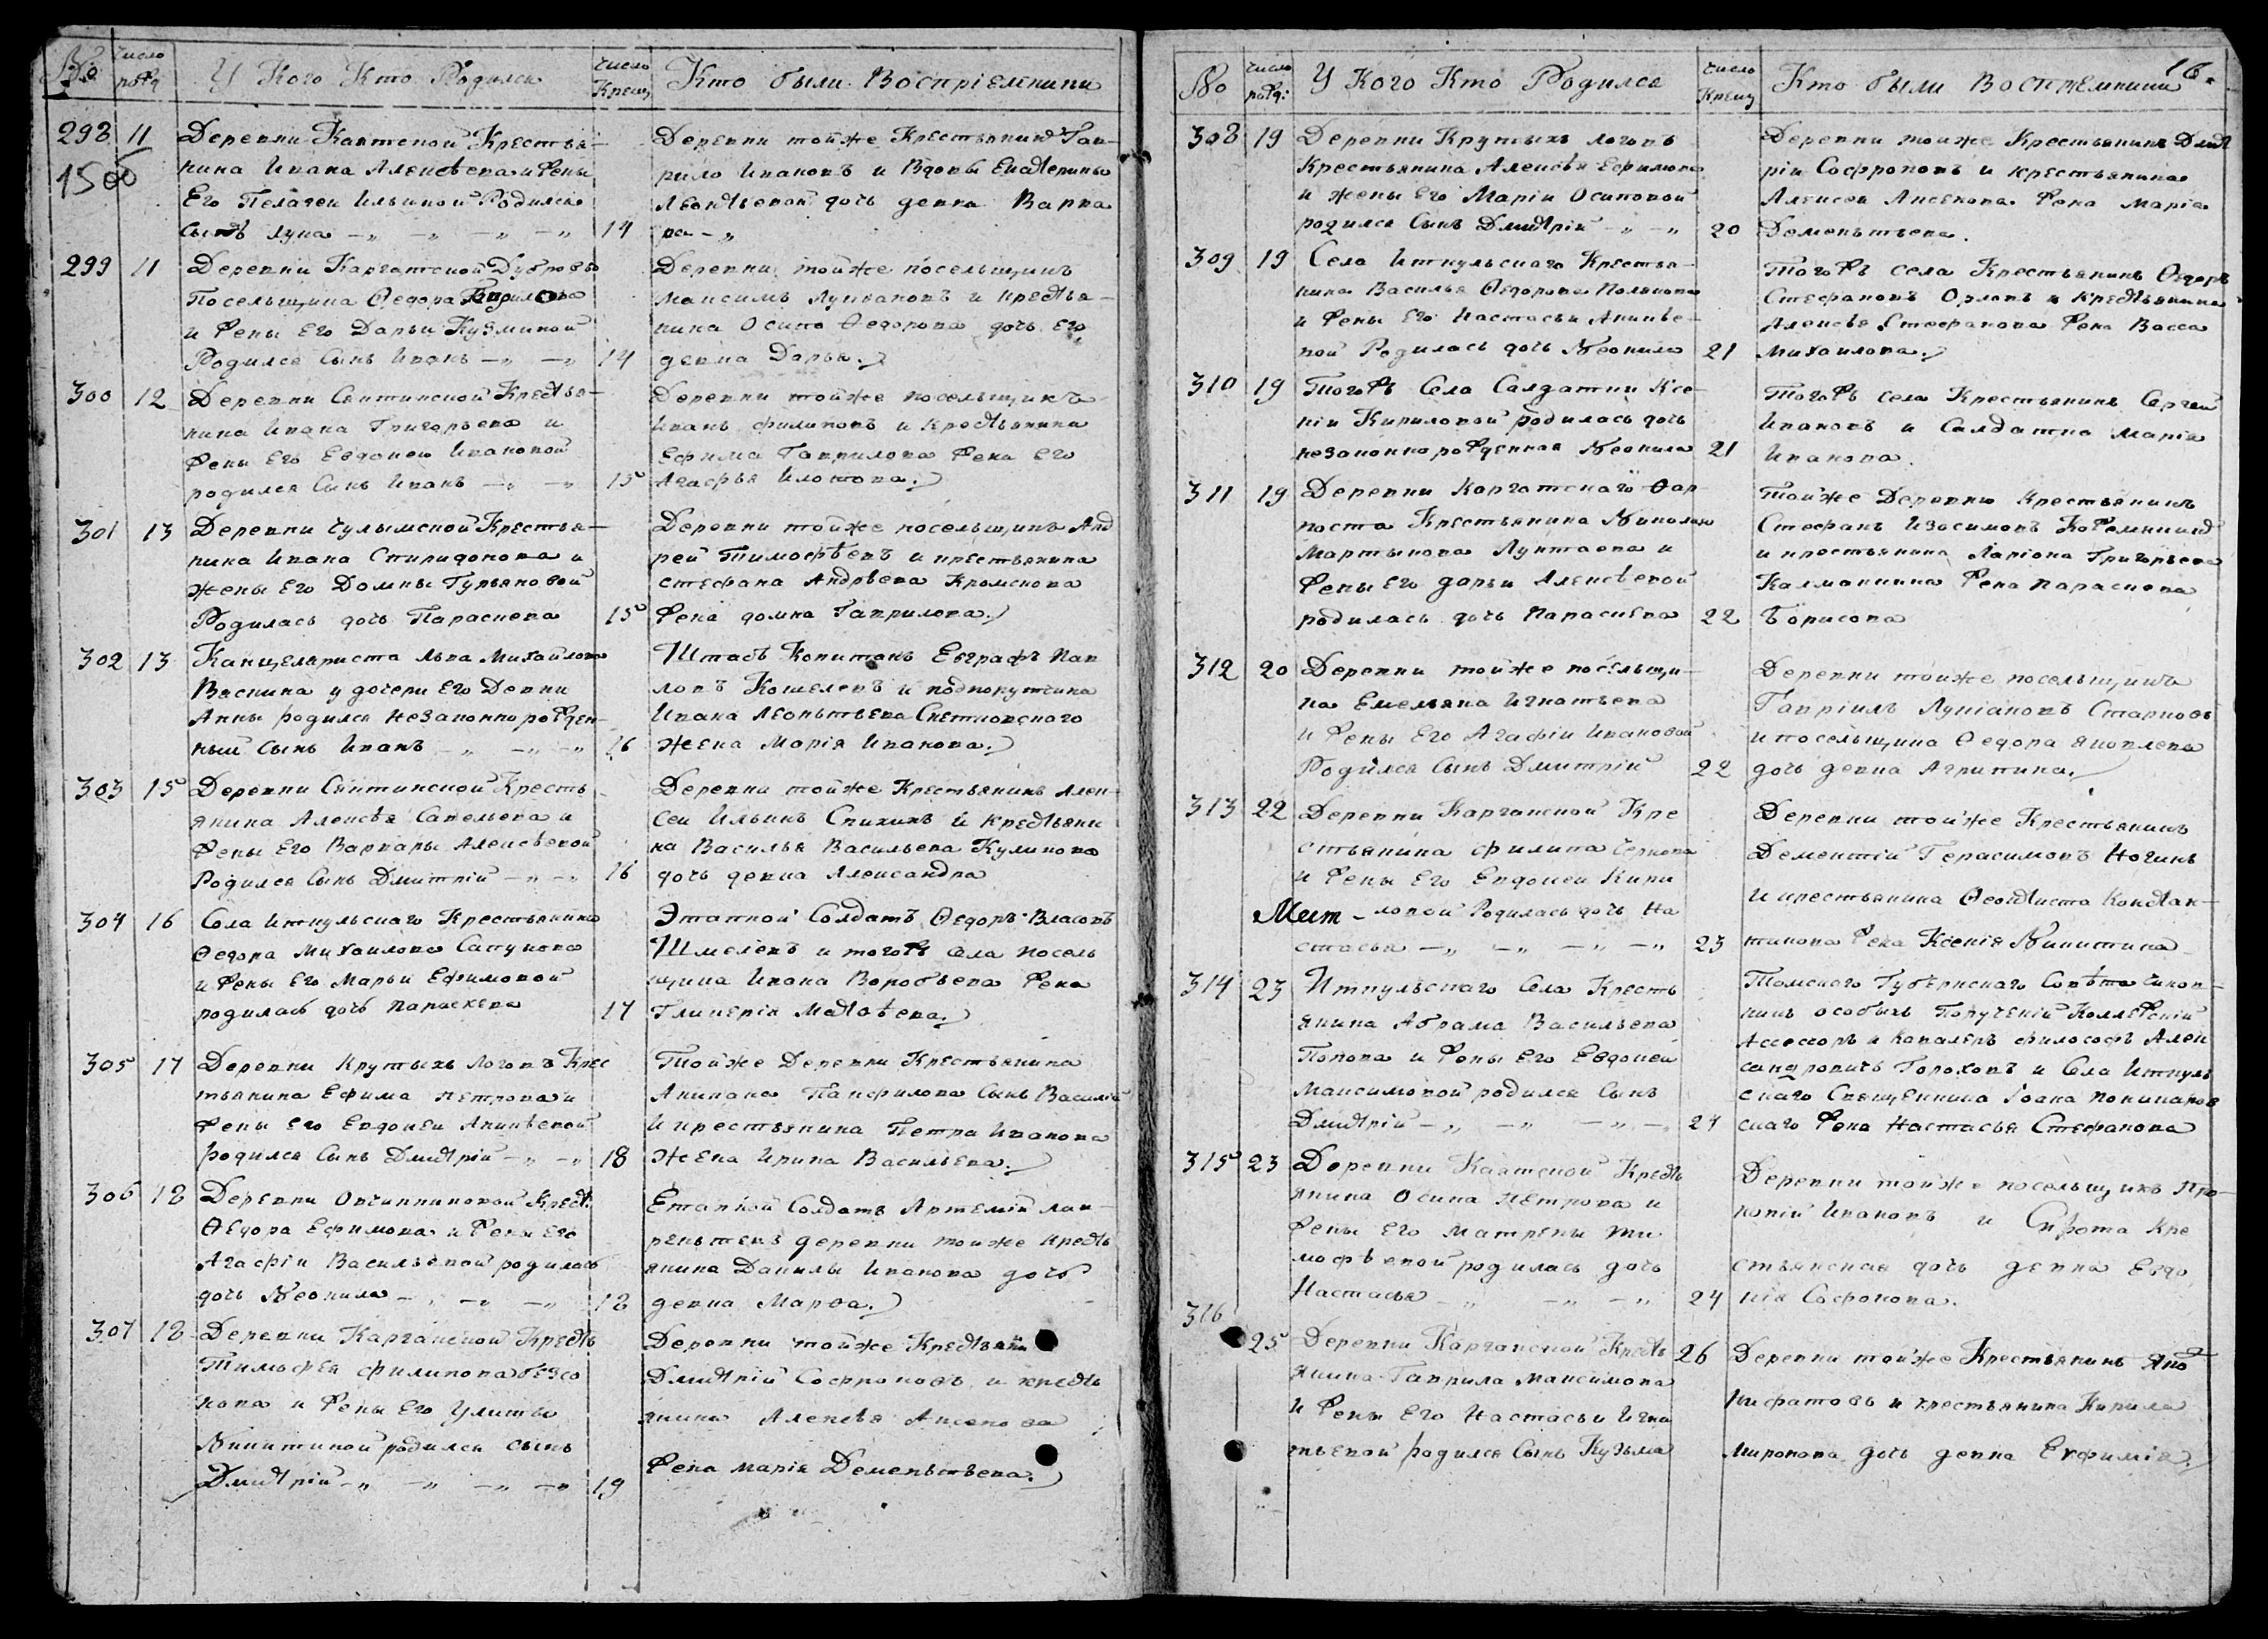 № число рожд У Кого Кто Родился число Крещ Кто были Воспріемники
298 11 Деревни Каятской Крестья-
1500
нина Ивана Алексѣева и жены
Его Пелагеи Ильиной Родился
сынъ Лука 14
Деревни тойже Крестьянинъ Гав-
рило Ивановъ и Вдовы Екатерины
Леонтьевой дочь девка Варва
ра
299 11 Деревни Каргатской Дубровы
Посельщика Ѳедора
и жены Его Дарьи Кузминой
Родился Сынъ Иванъ 14
Деревни тойже посельщикъ
Максимъ Лукьяновъ и крестья-
нина Осипа Ѳедорова дочь Его
девка Дарья.
300 12 Деревни Сектинской Крестья-
нина Ивана Григорьева и
жены Его Евдокеи Ивановой
родился Сынъ Иванъ 15
Деревни тойже посельщикъ
Иванъ Филиповъ и крестьянина
Ефима Гаврилова жена Его
Агафья Изотова.
301 13 Деревни Чулымской Крестья-
нина Ивана Спиридонова и
жены Его Домны Гурьяновой
Родилась дочь Параскева 15
Деревни тойже посельщикъ Анд
рей Тимофѣевъ и крестьянина
Стефана Андрѣева Кромскова
жена домна Гаврилова.
302 13 Канцеляриста Льва Михайлова
Васкина у дочери Его Девки
Анны родился незаконнорожден-
ный сынъ Иванъ 16
Штабъ Копитанъ Евграфъ Пав
ловъ Кошелевъ и подпорутчика
Ивана Леонтьева Снетковского
жена Марія Иванова.
303 15 Деревни Сектинской Кресть
янина Алексѣя Савельева и
жены Его Варвары Алексѣевой
Родился Сынъ Дмитрій 16
Деревни тойже Крестьянинъ Алек
сеи Ильинъ Спихихъ и крестьяни
на Василья Васильева Куликова
дочь девка Александра
304 16 Села Иткульскаго Крестьянина
Ѳедора Михаилова Сапунова
и жены Его Марьи Ефимовой
родилась дочь Параскева 17
Этапной Солдатъ Ѳедоръ Власовъ
Шмелевъ и тогожъ села посель
щика Ивана Воробьева жена
Гликерія Матвѣева.
305 17 Деревни Крутыхъ Логовъ Крес
тьянина Ефима Петрова и
жены Его Евдокеи Аникѣевой
родился Сынъ Дмитрій 18
Тойже Деревни Крестьянина
Аникана Панфилова Сынъ Василій
И крестьянина Петра Иванова
жена Ирина Васильева.
306 18 Деревни Овчинниковой Крест.
Ѳедора Ефимова и жены Его
Агафіи Васильевой родилась
дочь Неонила 18
Етапной Солдатъ Артемій Лав-
рентьевъ деревни тойже крестъ
янина Данилы Иванова дочь
девка Марѳа.
307 18 Деревни Карганской Кресть
Тимофея Филипова Безсо
нова и жены Его Улиты
Никитиной родился сынъ
Дмитрій 19
Деревни тойже Крестьяни
Дмитрій Софроновъ и кресть
янина Алексѣя Аксенова
жена Марія Дементьева.
№ число рожд: У Кого Кто Родился число Крещ Кто были Воспріемники 16.
308 19 Деревни Крутыхъ логовъ
Крестьянина Алексѣя Ефимова
и жены Его Маріи Осиповой
родился Сынъ Дмитрій 20
Деревни тойже Крестьянинъ Дмит
рій Софроновъ и крестьянина
Алексея Аксенова жена Марія
Дементьева.
309 19 Села Иткульскаго Крестья-
нина Василья Ѳедорова Полякова
и жены Его Настасьи Аникѣе-
вой Родилась дочь Неонила 21
Тогожъ села Крестьянинъ Ѳедоръ
Стефановъ Орловъ и крестьянина
Алексѣя Стефанова жена Васса
Михаилова.
310 19 Тогожъ Села Салдатки Ксе-
ніи Кириловой родилась дочь
незаконнорожденная Неонила 21
Тогожъ села Крестьянинъ Сергеи
Ивановъ и Салдатка Марія
Иванова.
311 19 Деревни Каргатскаго Фар-
поста Крестьянина Николая
Мартынова Луктаева и
жены Его дарьи Алексѣевой
родилась дочь Парасиева 22
Тойже Деревни крестьянинъ
Стефанъ Изосимовъ Кожемякинъ
и крестьянина Ларіона Григорьева
Калмакина жена Параскева
Борисова
312 20 Деревни тойже посельщи-
ка Емельяна Игнатьева
И жены Его Агафіи Ивановой
Родился Сынъ Дмитрій 22
Деревни тойже посельщикъ
Гавріилъ Лукіановъ Старковъ
и посельщика Ѳедора Яковлева
дочь девка Агрипина.
313 22 Деревни Карганской Кре
стьянина Филипа Чернова
и жены Его Евдокеи Кири
ловой Родилась дочь На
стасья 23
Деревни тойже Крестьянинъ
Дементій Герасимовъ Ногинъ
И крестьянина Ѳеоктиста Констан-
тинова жена Ксенія Никитина
314 23 Иткульскаго Села Кресть
янина Абрама Васильева
Попова и жены Его Евдокеи
Максимовой родился Сынъ
Дмитрій 24
Томскаго Губернскаго Совѣта Чинов-
никъ особыхъ Порученій Коллежскій
Ассесоръ и Кавалеръ Философъ Алек
сандровичъ Гороховъ и Села Иткуль
скаго Священника Іоана Поникаров
скаго жена Настасья Стефанова
315 23 Деревни Каятской Кресть
янина Осипа Петрова и
жены Его Матрены Ти
мофѣевой родилась дочь
Настасья 24
Деревни тойже посельщикъ Про-
копій Ивановъ и Сирота Кре
стьянская дочь девка Евдо
кія Софонова.
316 25 Деревни Карганской Кресть 26
янина Гаврила Максимова
И жены Его Настасьи Игна
тьевой родился Сынъ Кузьма
Деревни тойже Крестьянинъ
Нифатовъ и крестьянина Кирила
Миронова дочь девка Евфимія.